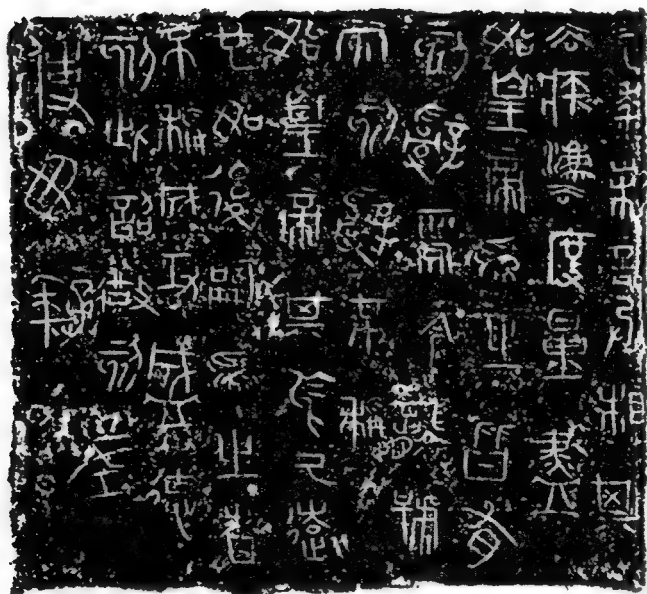 元年制詔丞相斯
去疾灋度量盡
始皇帝爲之皆有
刻辭焉今襲號
而刻辭不稱
始皇帝其於久遠
也如後嗣爲之者
不稱成功盛德
刻此詔故刻左
使毋疑